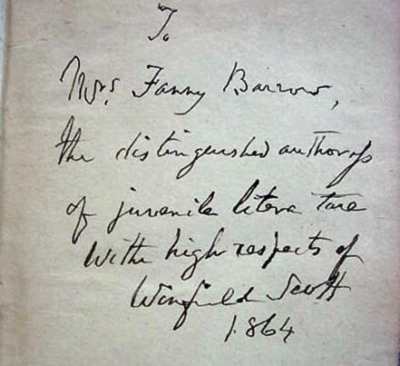 To
Mrs. Fanny Barrow,
the distinguished authoress
of juvenile literature
With high respects of
Winfield Scott
1864